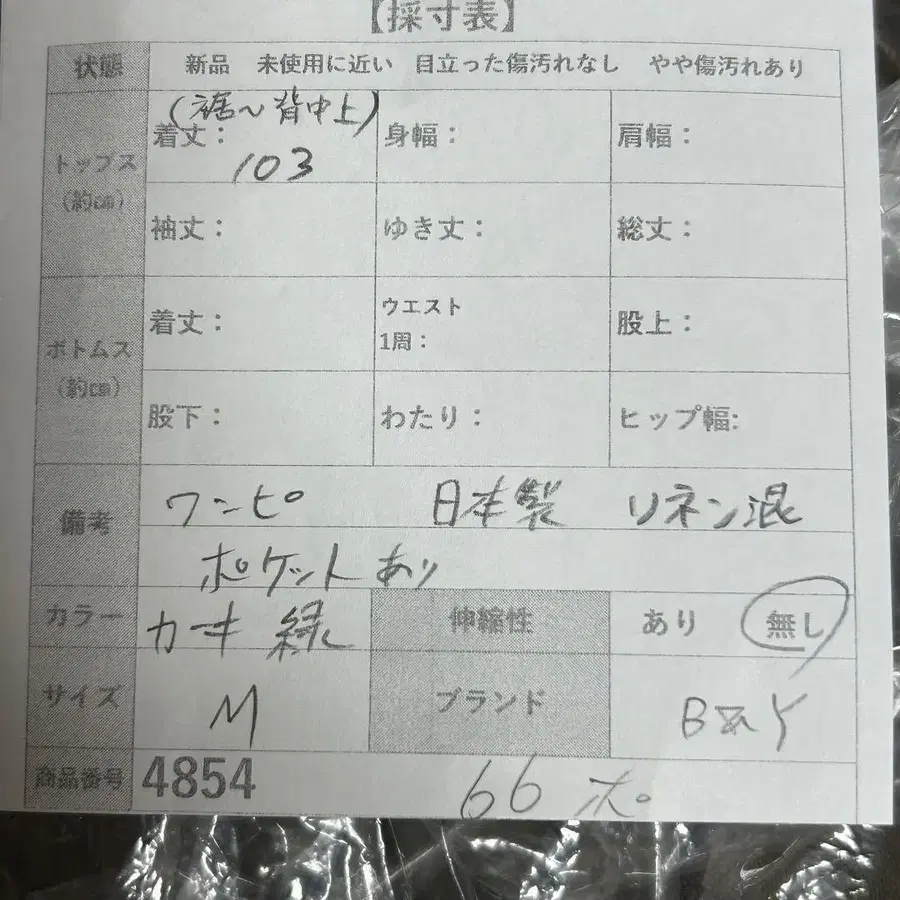 【採寸表】
状態 新品 未使用に近い 目立った傷汚れなし やや傷汚れあり
(裾～背中上)
トップス (約㎝) 着丈： 103 身幅： 肩幅：
袖丈： ゆき丈： 総丈：
ボトムス (約㎝) 着丈： ウエスト 1周： 股上：
股下： わたり： ヒップ幅:
備考 ワンピ 日本製 リネン混
ポケットあり
カラー カーキ 緑 伸縮性 あり 無し
サイズ M ブランド
商品番号 4854 66 ポ